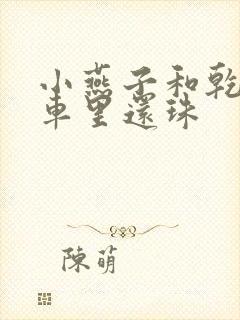 小燕子和乾
車里還珠
陳萌